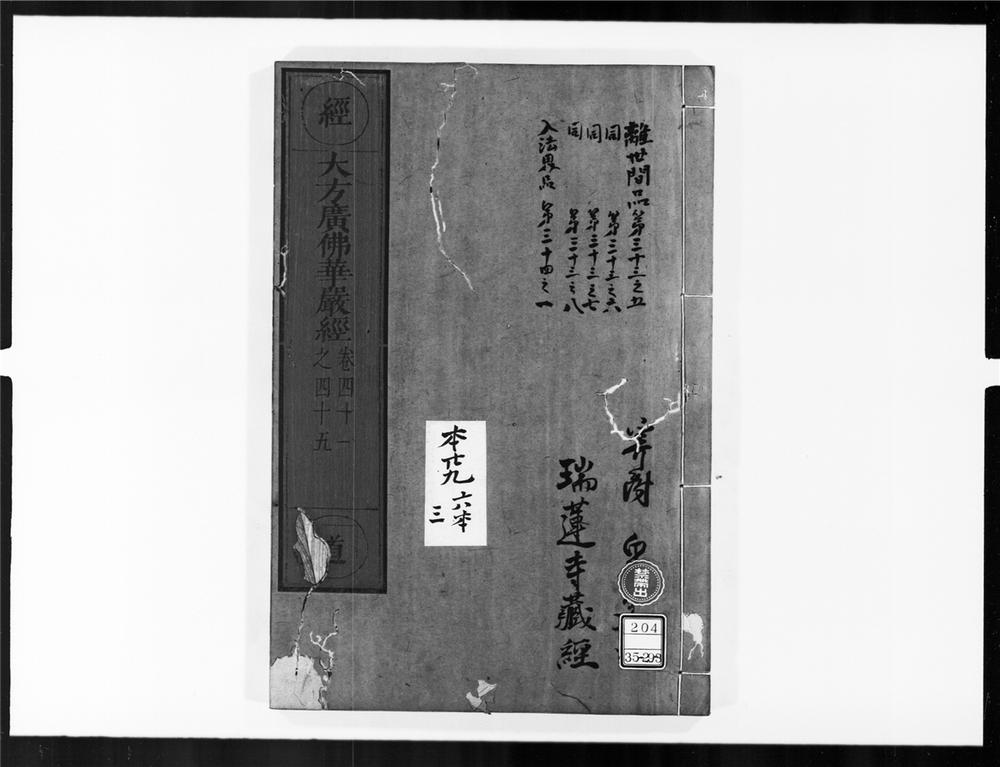 離世間品第三十三之五
同 第三十三之六
同 第三十三之七
同 第三十三之八
入法界品 第三十四之一
寄附
瑞蓮寺藏經
禁帶出
204
35-298
本
六本
三
經
大方廣佛華嚴經
卷四十一
之四十五
道